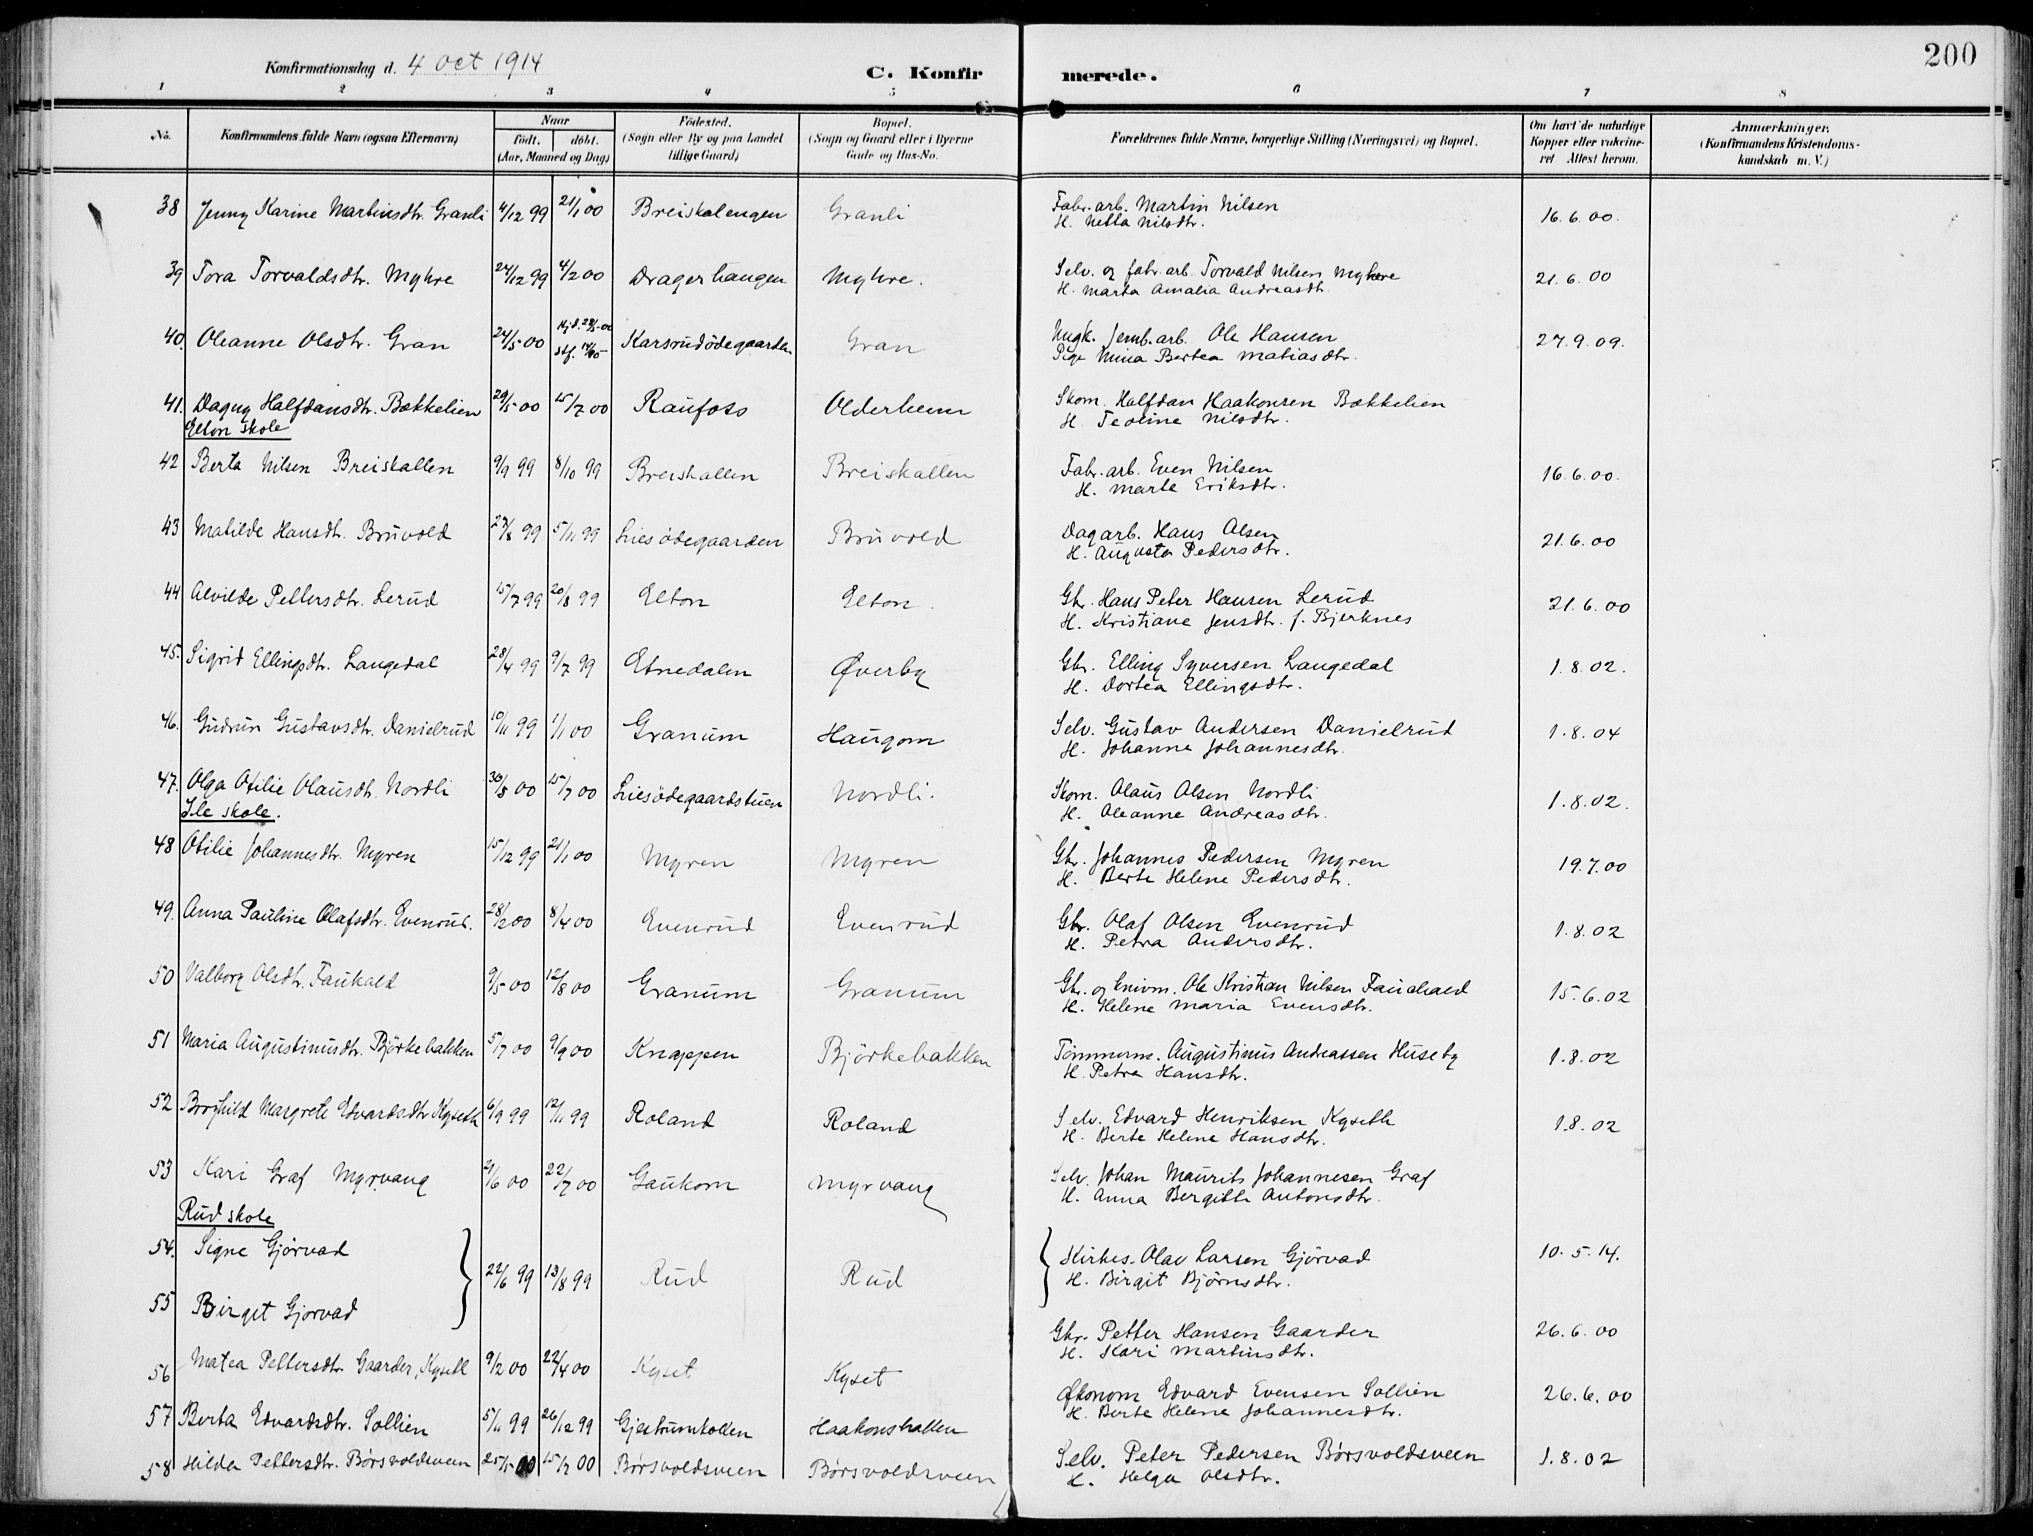 200
Konfirmationsdag d. 4 oct 1914
C. Konfir merede.
1 2 3 4 5 6 7 8
No. Konfirmandens fulde Navn (ogsaa Efternavn) Naar født. døbt. (Aar, Maaned og Dag) Fødested. (Sogn eller By og paa Landet tillige Gaard) Bopæl. (Sogn og Gaard eller i Byerne Gade og Hus-No. Forældrenes fulde Navne, borgerlige Stilling (Næringsvei) og Bopæl. Om havt de naturlige Kopper eller vaksineret Attest herom. Anmærkninger. (Konfirmandens Kristendomskundskab m. V.)
38 Jenny Karine Martinsdtr. Granli 4/12 99 21/1 00 Breiskalengen Granli Fabr. arb. Martin Nilsen 16.6.00.
H. Netta Nilsdtr.
39 Tora Torvaldsdtr. Myhre 24/12 99 4/2 00 Dragerhaugen Myhre. Selv. og fabr. arb. Torvald Nilsen Myhre 21.6.00
H. Marta Amalia Andreasdtr.
40. Oleanne Olsdtr. Gran 24/5 00 Karsrudødegaarden Gran Ungk. Jernb. arb. Ole Hansen 27.9.09.
Pige Mina Bertea Matiasdtr.
41. Dagny Halfdansdtr. Bækkelien 29/5 00 15/7 00 Raufoss Olderheim Skom. Halfdan Haakonsen Bækkelien
H. Teoline Nilsdtr.
Elton skole
42 Berta Nilsen Breiskallen 9/9 99 8/10 99 Breiskallen Breiskallen Fabr. arb. Even Nilsen 16.6.00.
H. Marte Eriksdtr.
43 Matilde Hansdtr. Bruvold 23/8 99 5/11 99 Liesødegaarden Bruvold Dagarb. Hans Olsen 21.6.00
H. Augusta Pedersdtr.
44 Alvilde Pettersdtr. Lerud 15/7 99 20/8 99 Elton Elton. Gbr. Hans Peter Hansen Lerud 21.6.00
H. Kristiane Jensdtr. f. Bjerknes
45. Sigrid Ellingsdtr. Langedal 28/4 99 9/7 99 Etnedalen Øverby Gbr. Elling Syversen Langedal 1.8.02.
H. Dortea Ellingsdtr.
46. Gudrun Gustavsdtr. Danielrud 10/11 99 1/1 00 Granum Haugom Selv. Gustav Andersen Danielrud 1.8.04
H. Johanne Johannesdtr.
47. Olga Otilie Olausdtr. Nordli 30/5 00 15/7 00 Liesødegaardstuen Nordli. Skom. Olaus Olsen Nordli 1.8.02.
H. Oleanne Andreasdtr.
Ile skole.
48 Otilie Johannesdtr. Myren 15/12 99 21/1 00 Myren Myren Gbr. Johannes Pedersen Myren 19.7.00
H. Berte Helene Pedersdtr.
49. Anna Pauline Olafsdtr. Evenrud. 28/2 00 8/4 00 Evenrud Evenrud Gbr. Olaf Olsen Evenrud 1.8.02
H. Petra Andersdtr.
50 Valborg Olsdtr. Faukald 9/5 00 12/8 00 Granum Granum Gbr. og Ole Kristian Nilsen Fauchald 15.6.02
H. Helene Maria Evensdtr.
51 Maria Augustinusdtr. Björkebakken 5/7 00 9/9 00 Knappen Björkebakken Tömmerm. Augustinus Andreassen Huseby 1.8.02
H. Petra Hansdtr.
52 Broghild Margrete Edvardsdtr. Kyseth 6/9 99 12/11 99 Roland Roland Selv. Edvard Henriksen Kyseth 1.8.02
H. Berte Helene Hansdtr.
53 Kari Graf Myrvang 2/6 00 22/7 00 Gaukom Myrvang Selv. Johan Maurits Johannesen Graf
H. Anna Bergitte Antonsdtr.
Rud skole
54. Signe Gjörvad 22/6 99 13/8 99 Rud Rud Kirkes. Olav Larsen Gjörvad 10.5.14.
H. Birgit Björnsdtr.
55 Birgit Gjörvad
56 Matea Pettersdtr. Gaarder, Kyseth 9/2 00 22/4 00 Kyset Kyset Gbr. Petter Hansen Gaarder 26.6.00
H. Kari Martinsdtr.
57 Berta Edvardsdtr. Sollien 5/11 99 26/12 99 Gjestrumkollen Haakonshallen Økonom Edvard Evensen Sollien 26.6.00
H. Berte Helene Johannesdtr.
58 Hilda Pettersdtr. Børsvoldsveen 25/5 00 15/7 00 Børsvoldsveen Børsvoldsveen Selv. Peter Pedersen Børsvoldsveen 1.8.02
H. Helga Olsdtr.